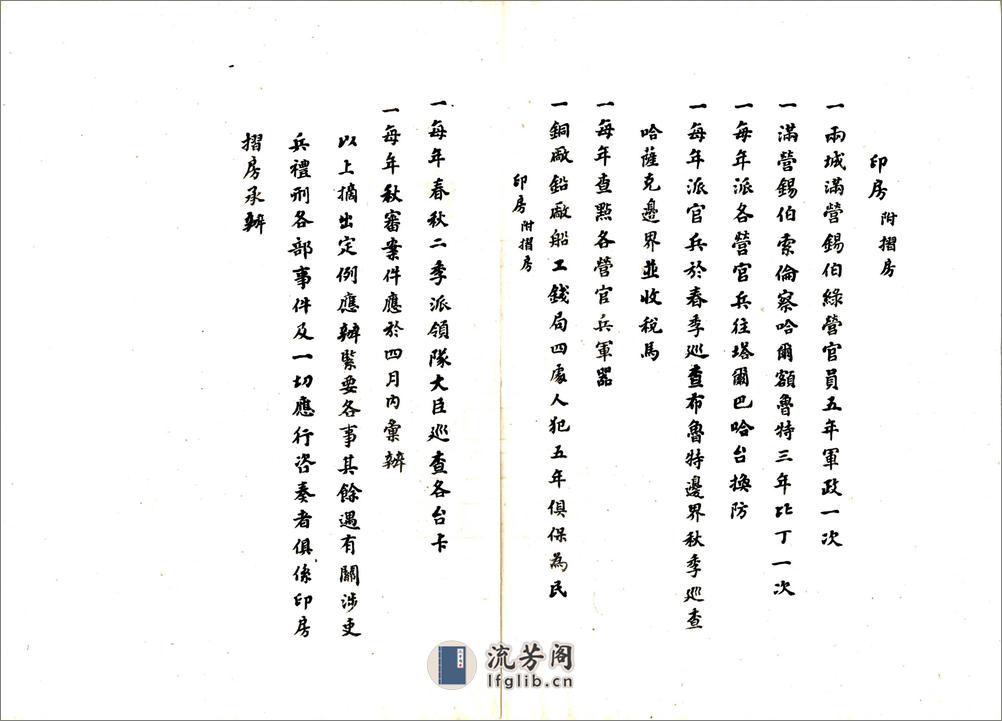 印房 附摺房
一兩城滿營錫伯綠營官員五年軍政一次
一滿營錫伯索倫察哈爾額魯特三年比丁一次
一每年派各營官兵往塔爾巴哈台換防
一每年派官兵於春季巡查布魯特邊界秋季巡查
哈薩克邊界並收稅馬
一每年查點各營官兵軍器
一銅廠鉛廠船工錢局四處人犯五年俱保為民
印房 附摺房
一每年春秋二季派領隊大臣巡查各台卡
一每年秋審案件應於四月內彙辦
以上摘出定例應辦緊要各事其餘遇有關涉吏
兵禮刑各部事件及一切應行咨奏者俱係印房
摺房承辦
流芳阁
lfglib.cn